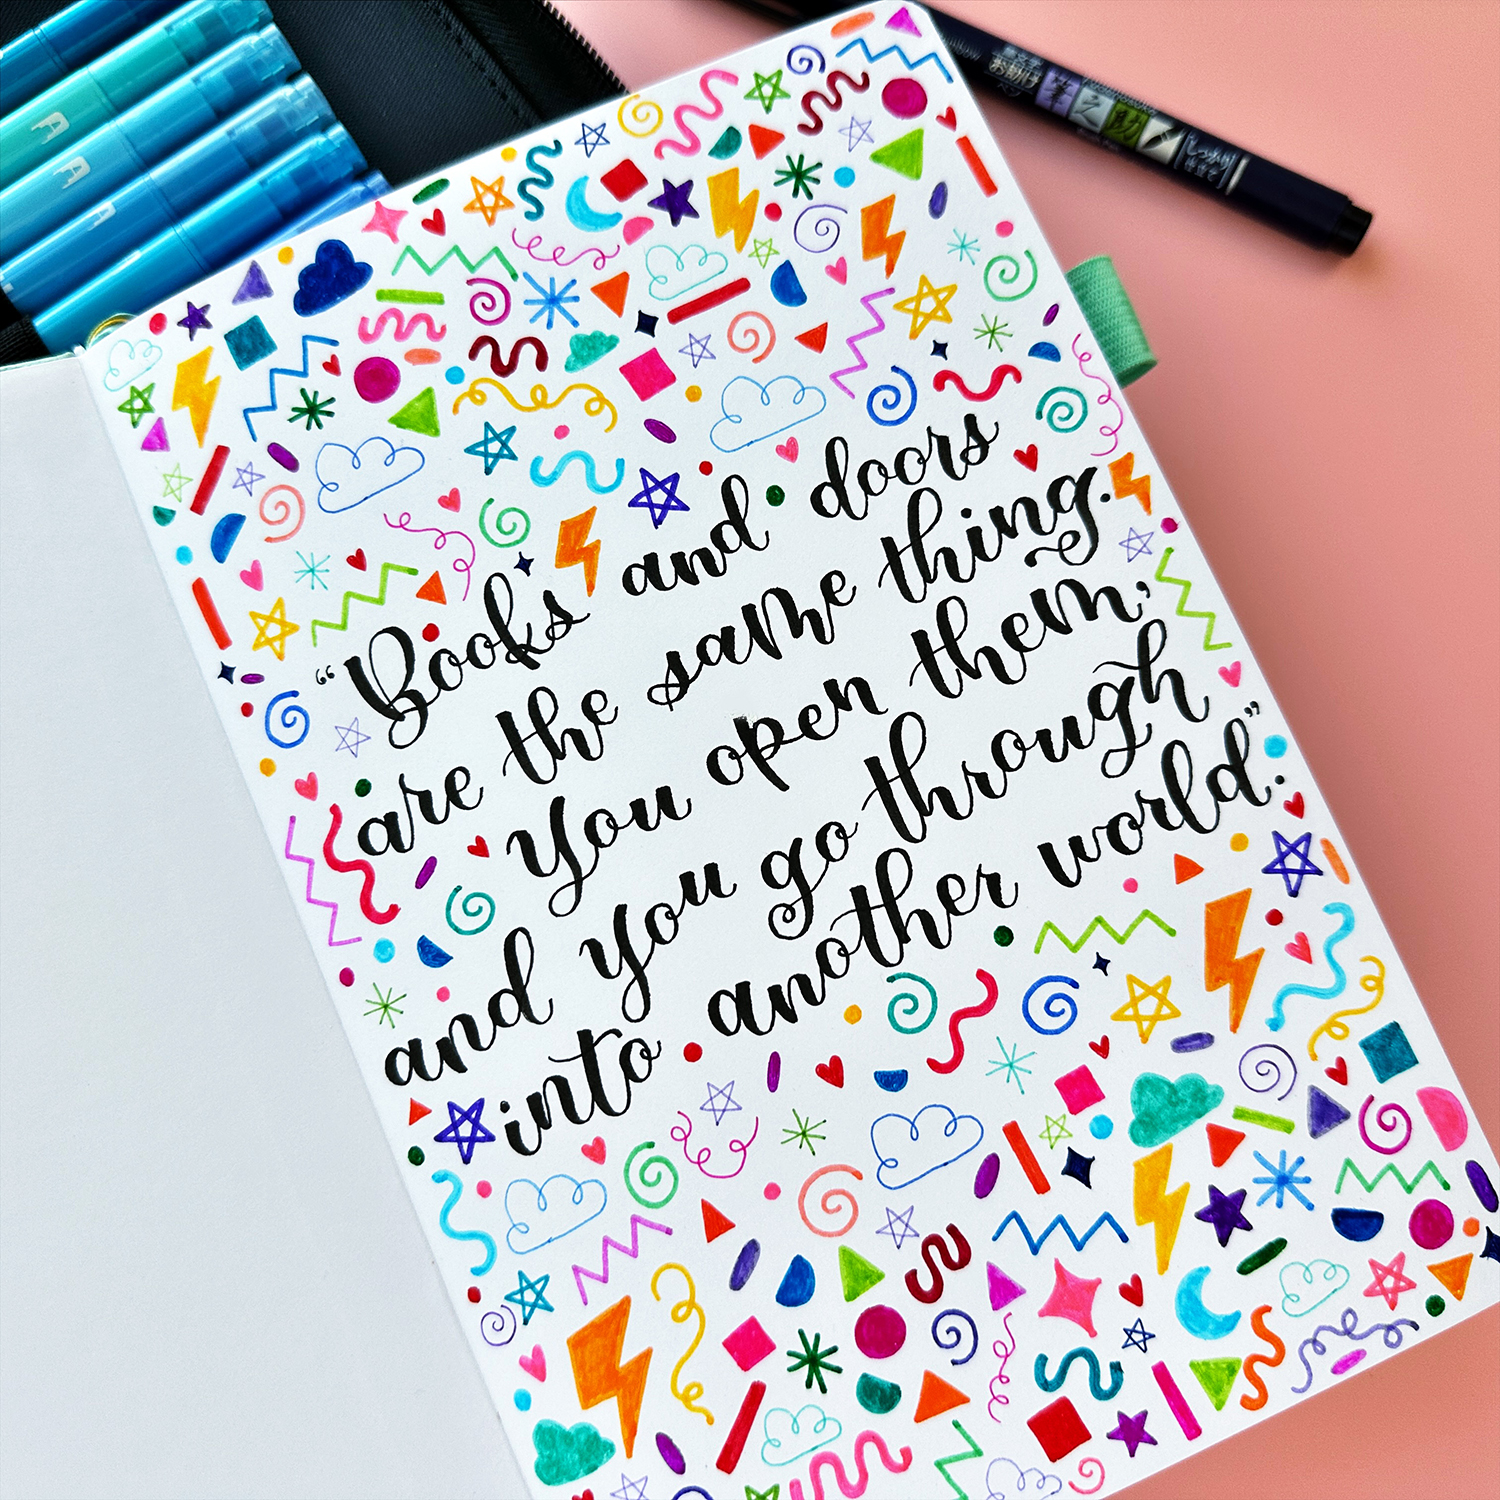 “Books and doors
are the same thing.
You open them,
and you go through
into another world.”